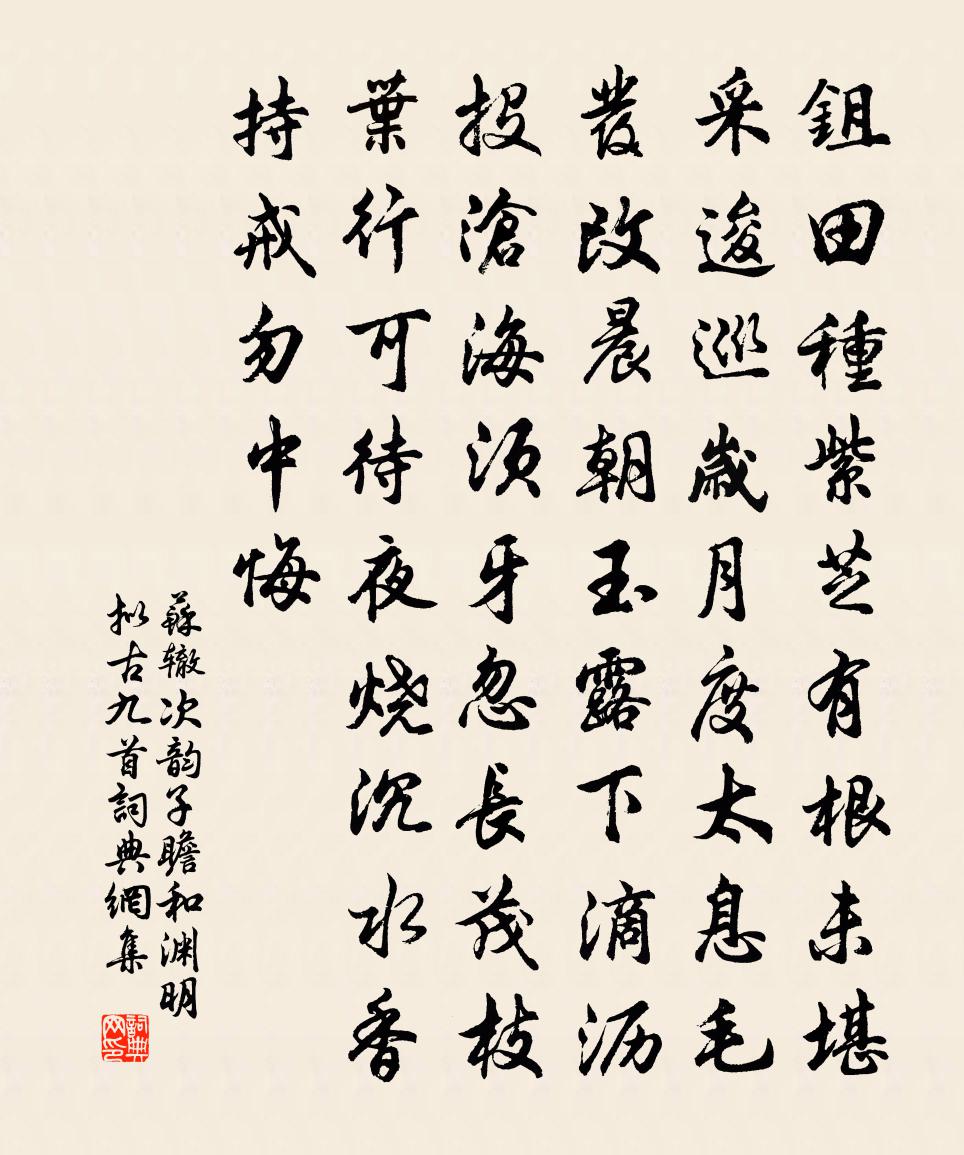 鉏田種紫芝有根未堪
采逡巡歲月度太息毛
發改晨朝玉露下滴沥
投滄海須牙忽長茂枝
葉行可待夜燒沉水香
持戒勿中悔
蘇辙次韵子瞻和渊明
拟古九首詞典網集
詞典網印